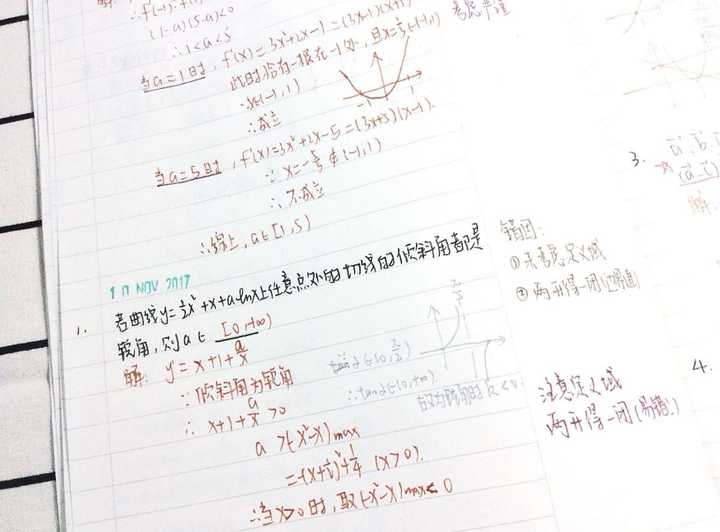 (1-a)(5-a)<0
∴1<a<5
当a=1时, f'(x)=3x²+2x-1=(3x-1)(x+1)
此时恰有一根在-1处,
∴成立
当a=5时, f'(x)=3x²+2x-5=(3x+5)(x-1)
∴不成立
∴综上, a∈[1,5)
10 NOV 2017
1. 若曲线y=½x²+x+a·lnx上任意点处的切线的倾斜角都是
锐角, 则a∈ [0,+∞)
解: y'=x+1+a/x
∵倾斜角为锐角
∴x+1+a/x>0
a>(-x²-x)max
=-(x+½)²+¼ (x>0).
∴当x>0时, 取(-x²-x)max<0
∴tanα∈(0,+∞)
错因:
①未考虑定义域
②两开得一闭
注意定义域
两开得一闭(易错!)
3.
4.